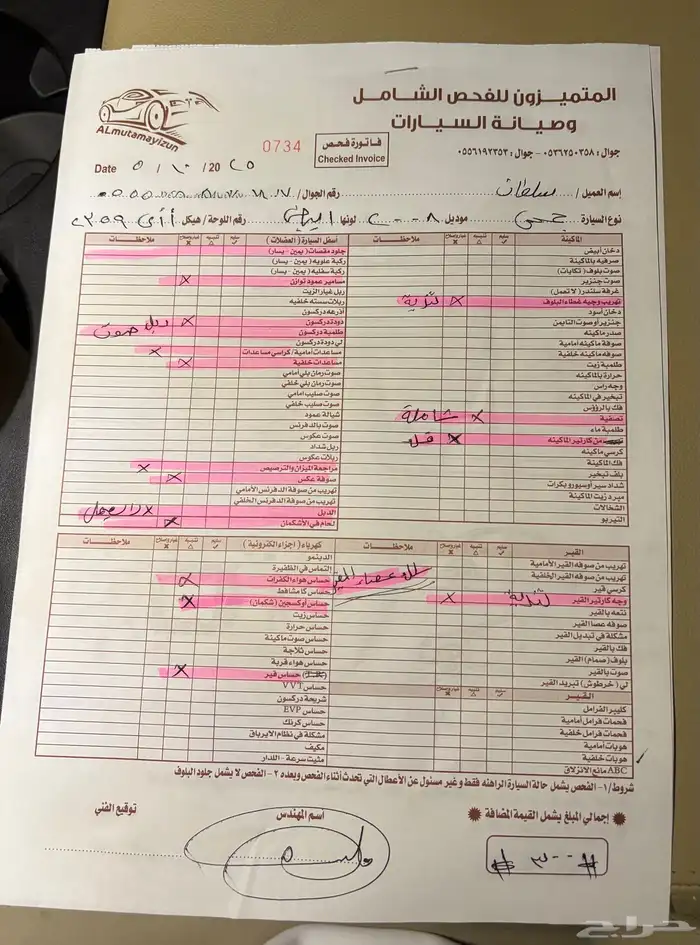 المتميزون للفحص الشامل
وصيانة السيارات
ALmutamayizun
جوال : ٠٥٣٦٢٥٠٣٥٨ - جوال : ٠٥٥٦١٩٢٣٥٣
0734
فاتورة فحص
Checked Invoice
Date ٥ / ١٠ / 20 ٢٥
إسم العميل / سلطان
رقم الجوال /
نوع السيارة جمس موديل ٢٠٠٨ لونها
رقم اللوحة / هيكل ٢٣٥٩
الماكينة
سليم تنبيه غير صالح ملاحظات
دخان أبيض
صرفيه بالماكينة
صوت بلوف (تكايات)
صوت جنزير
غرفة سلندر (لا تعمل)
تهريب وجيه غطاء البلوف X تندية
دخان أسود
جنزير أو صوت التايمن
صدر ماكينه
صوفة ماكينه أمامية
صوفه ماكينه خلفية
طلمبة زيت
حرارة بالماكينه
وجه راس
تبخير في الماكينه
فك بالرؤوس
تصفية X شاملة
طلمبة ماء
من كارتير الماكينه X
كرسي ماكينه
فك الماكينة
بلف تبخير
شداد سير أو سيور و بكرات
مبرد زيت الماكينة
الشخالات
التيربو
أسفل السيارة (العضلات)
سليم تنبيه غير صالح ملاحظات
جلود مقصات (يمين - يسار)
ركبة علويه (يمين - يسار)
ركبة سفليه (يمين - يسار)
مسامير عمود توازن X
ربل غيار الزيت
ربلات سسته خلفيه
أذرعه دركسون
دودة دركسون X ربل صوت
طلمبة دركسون
لي دودة دركسون
مساعدات أمامية / كراسي مساعدات X
مساعدات خلفية X
صوت رمان بلي أمامي
صوت رمان بلي خلفي
صوت صليب أمامي
صوت صليب خلفي
شيالة عمود
صوت بالدفرنس
صوت عكوس
ربل شداد
ربلات عكوس
مراجعة الميزان والترصيص X
صوفة عكس X
تهريب من صوفة الدفرنس الأمامي
تهريب من صوفة الدفرنس الخلفي
الدبل X لا يعمل
لحام في الأشكمان X
القير
سليم تنبيه غير صالح ملاحظات
تهريب من صوفه القير الأمامية
تهريب من صوفه القير الخلفية
كرسي قير
وجه كارتير القير X تندية
نتعه بالقير
صوفه عصا القير
مشكلة في تبديل القير
فك بالقير
بلوف (صمام) القير
صوت بالقير
لي (خرطوش) تبريد القير
القير
سليم تنبيه غير صالح
كليبر الفرامل
فحمات فرامل أمامية
فحمات فرامل خلفية
هوبات أمامية
هوبات خلفية
ABC مانع الانزلاق
كهرباء (أجزاء الكترونية)
سليم تنبيه غير صالح ملاحظات
الدينمو
التماس في الظفيرة
حساس هواء الكفرات X
حساس كامشافط
حساس أوكسجين (شكمان) X
حساس زيت
حساس حرارة
حساس صوت ماكينة
حساس ثلاجة
حساس هواء قربة
حساس قير X
حساس VVT
شريحة دركسون
حساس EVP
حساس كرنك
مشكلة في نظام الايرباق
مكيف
مثبت سرعة - اللدار
شروط / ١- الفحص يشمل حالة السيارة الراهنه فقط و غير مسئول عن الأعطال التي تحدث أثناء الفحص وبعده ٢- الفحص لا يشمل جلود البلوف
إجمالي المبلغ يشمل القيمة المضافة
# ٣٠٠ #
اسم المهندس
توقيع الفني
حراج